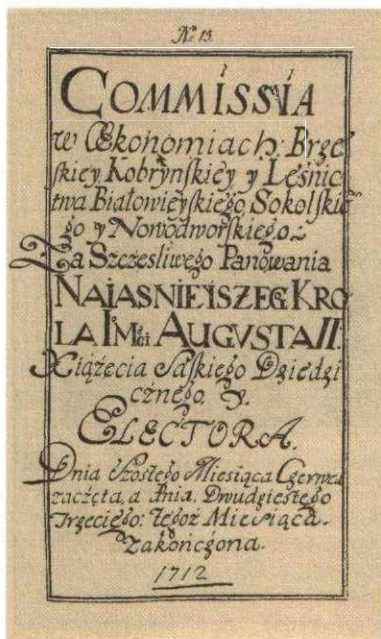 No 13.
COMMISSIA
w Œkonomiach: Brze
skiey Kobrynskiey y Leśnic
twa Białowieyskiego, Sokolskie
go y Nowodworskiego.
Za Szczesliwego Panowania
NAIASNIEISZEGO KRO
LA IMśći AUGVSTA II.
Xiążecia Saskiego Dziedzi
cznego. y.
ELECTORA.
Dnia Szostego Miesiąca Czerwca
zaczęta, a dnia. Dwudziestego
Trzeciego: tegoż Miesiąca.
zakończona.
1712